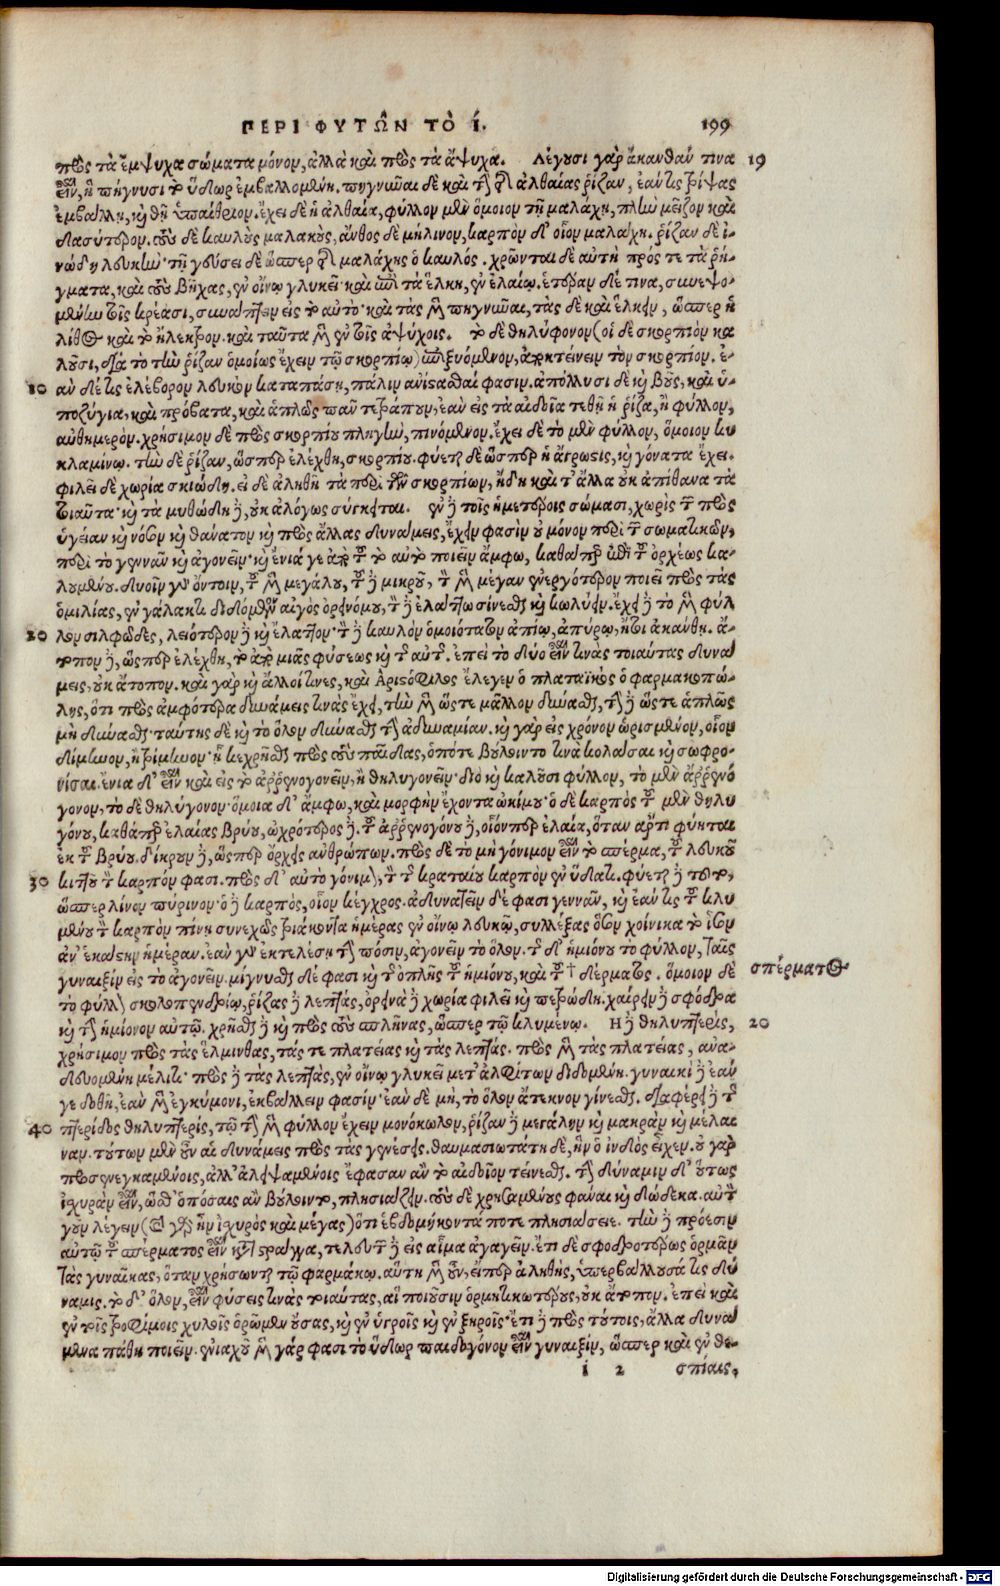 ΠΕΡΙ ΦΥΤΩ͂Ν ΤῸ Ί. 199
πρὸς τὰ ἔμψυχα σώματα μόνον, ἀλλὰ καὶ πρὸς τὰ ἄψυχα. Λέγουσι γὰρ ἄκανθάν τινα 19
εἶναι, ἣ πήγνυσι τὸ ὕδωρ ἐμβαλλομένη. πήγνυται δὲ καὶ τὴν τῆς ἀλθαίας ῥίζαν, ἐάν τις τρίψας
ἐμβάλῃ, καὶ θῇ ὑπαίθριον. ἔχει δὲ ἡ ἀλθαία, φύλλον μὲν ὅμοιον τῇ μαλάχῃ, πλὴν μεῖζον καὶ
δασύτερον. τοὺς δὲ καυλοὺς μαλακούς, ἄνθος δὲ μήλινον, καρπὸν δ' οἷον μαλάχη. ῥίζαν δὲ ἰ-
νώδη λευκὴν· τῇ γεύσει δὲ ὥσπερ τῆς μαλάχης ὁ καυλός. χρῶνται δὲ αὐτῇ πρός τε τὰ ῥή-
γματα, καὶ τοὺς βῆχας, ἐν οἴνῳ γλυκεῖ· καὶ ἐπὶ τὰ ἕλκη, ἐν ἐλαίῳ. ἑτέραν δέ τινα, συνεψο-
μένην τοῖς κρέασι, συνάπτειν εἰς τὸ αὐτό· καὶ τὰς μὲν πήγνυται, τὰς δὲ καὶ ἕλκειν, ὥσπερ ἡ
λίθος καὶ τὸ ἤλεκτρον. καὶ ταῦτα μὲν ἐν τοῖς ἀψύχοις. τὸ δὲ θηλύφονον (οἱ δὲ σκορπίον κα
λοῦσι, διὰ τὸ τὴν ῥίζαν ὁμοίως ἔχειν τῷ σκορπίῳ) ἐπιξυόμενον, ἀποκτείνειν τὸν σκορπίον. ἐ-
10 ὰν δέ τις ἐλέβορον λευκὸν καταπάσῃ, πάλιν ἀνίστασθαί φασιν. ἀπόλλυσι δὲ καὶ βοῦς, καὶ ὑ-
ποζύγια, καὶ πρόβατα, καὶ ἁπλῶς πᾶν τετράπουν, ἐὰν εἰς τὰ αἰδοῖα τεθῇ ἡ ῥίζα, ἢ φύλλον,
αὐθημερόν. χρήσιμον δὲ πρὸς σκορπίου πληγὴν, πινόμενον. ἔχει δὲ τὸ μὲν φύλλον, ὅμοιον κυ
κλαμίνῳ. τὴν δὲ ῥίζαν, ὥσπερ ἐλέχθη, σκορπίου. φύεται δὲ ὥσπερ ἡ ἄγρωστις, καὶ γόνατα ἔχει.
φιλεῖ δὲ χωρία σκιώδη. εἰ δὲ ἀληθῆ τὰ περὶ τῶν σκορπίων, ἤδη καὶ τ' ἄλλα οὐκ ἀπίθανα τὰ
τοιαῦτα· καὶ τὰ μυθώδη δὲ, οὐκ ἀλόγως σύγκειται. ἐν δὲ τοῖς ἡμετέροις σώμασι, χωρὶς τῶν πρὸς
ὑγείαν καὶ νόσον καὶ θάνατον καὶ πρὸς ἄλλας δυνάμεις, ἔχειν φασὶν οὐ μόνον περὶ τῶν σωματικῶν,
περὶ τὸ γεννᾶν καὶ ἀγονεῖν· καὶ ἔνιά γε ἀπὸ τοῦ τὸ αὐτὸ ποιεῖν ἄμφω, καθάπερ ἐπὶ τοῦ ὄρχεως κα-
λουμένου. δυοῖν γὰρ ὄντοιν, τοῦ μὲν μεγάλου, τοῦ δὲ μικροῦ, τὸν μὲν μέγαν ἐνεργότερον ποιεῖ πρὸς τὰς
ὁμιλίας, ἐν γάλακτι διδόμενον αἰγὸς ὀρεινόμου, τὸν δὲ ἐλάττω σίνεσθαι καὶ κωλύειν. ἔχει δὲ τὸ μὲν φύλ
20 λον σιλφῶδες, λειότερον δὲ καὶ ἔλαττον· τὸν δὲ καυλὸν ὁμοιότατον ἀπίῳ, ἀπύρῳ, ἤτοι ἀκάνθῃ. ἄ-
τοπον δὲ, ὥσπερ ἐλέχθη, τὸ ἀπὸ μιᾶς φύσεως καὶ τῆς αὐτῆς. ἐπεὶ τὸ δύο εἶναι τινὰς τοιαύτας δυνά
μεις, οὐκ ἄτοπον. καὶ γὰρ καὶ ἄλλοί τινες, καὶ Ἀριστόφιλος ἔλεγεν ὁ πλαταϊκὸς ὁ φαρμακοπώ-
λης, ὅτι πρὸς ἀμφότερα δυνάμεις τινὰς ἔχει, τὴν μὲν ὥστε μᾶλλον δύνασθαι, τὴν δὲ ὥστε ἁπλῶς
μὴ δύνασθαι· ταύτης δὲ καὶ τὸ ὅλον δύνασθαι τὴν ἀδυναμίαν. καὶ γὰρ εἰς χρόνον ὡρισμένον, οἷον
δίμηνον, ἢ τρίμηνον· ᾗ κεχρῆσθαι πρὸς τοὺς παῖδας, ὁπότε βούλοιντο τινὰ κολάσαι καὶ σωφρο-
νίσαι. ἔνια δ' εἶναι καὶ εἰς τὸ ἀῤῥενογονεῖν, ἢ θηλυγονεῖν· διὸ καὶ καλοῦσι φύλλον, τὸ μὲν ἀῤῥενό
γονον, τὸ δὲ θηλύγονον· ὅμοια δ' ἄμφω, καὶ μορφὴν ἔχοντα ὠκίμου· ὁ δὲ καρπὸς τοῦ μὲν θηλυ
γόνου, καθάπερ ἐλαίας βρύου, ὠχρότερος δὲ. τοῦ ἀῤῥενογόνου δὲ, οἷόνπερ ἐλαία, ὅταν ἄρτι φύηται
ἐκ τοῦ βρύου. δίκρουν δὲ, ὥσπερ ὄρχεις ἀνθρώπων. πρὸς δὲ τὸ μὴ γόνιμον εἶναι τὸ σπέρμα, τοῦ λευκοῦ
30 κιττοῦ τὸν καρπόν φασι. πρὸς δ' αὐτὸ γόνιμον, τὸν τῆς κραταίου καρπὸν ἐν ὕδατι. φύεται δὲ τοῦτο,
ὥσπερ λίνον πύρινον· ὁ δὲ καρπὸς, οἷον κέγχρος. ἀδυνατεῖν δέ φασι γεννᾶν, καὶ ἐάν τις τοῦ κλυ
μένου τὸν καρπὸν πίνῃ συνεχῶς τριάκοντα ἡμέρας ἐν οἴνῳ λευκῷ, συλλέξας ὅσον χοίνικα τὸ ἴσον
ἀν' ἑκάστην ἡμέραν. ἐὰν γὰρ ἐκτελέσῃ τὴν πόσιν, ἀγονεῖν τὸ ὅλον. τῆς δ' ἡμιόνου τὸ φύλλον, ταῖς
γυναιξὶν εἰς τὸ ἀγονεῖν. μίγνυσθαι δέ φασι καὶ τῆς ὁπλῆς τοῦ ἡμιόνου, καὶ τοῦ † δέρματος. ὅμοιον δὲ σπέρματος
τὸ φύλλον σκολοπενδρίῳ, ῥίζας δὲ λεπτὰς, ὀρεινὰ δὲ χωρία φιλεῖ καὶ πετρώδη. χαίρειν δὲ σφόδρα
καὶ τὴν ἡμίονον αὐτῷ. χρῆσθαι δὲ καὶ πρὸς τοὺς σπλῆνας, ὥσπερ τῷ κλυμένῳ. Ἡ δὲ θηλυπτερὶς, 20
χρήσιμον πρὸς τὰς ἕλμινθας, τάς τε πλατείας καὶ τὰς λεπτάς. πρὸς μὲν τὰς πλατείας, ἀνα-
δευομένη μέλιτι· πρὸς δὲ τὰς λεπτὰς, ἐν οἴνῳ γλυκεῖ μετ' ἀλφίτων διδομένη. γυναικὶ δὲ ἐάν
γε δοθῇ, ἐὰν μὲν ἐγκύμονι, ἐκβάλλειν φασίν· ἐὰν δὲ μὴ, τὸ ὅλον ἄτεκνον γίνεσθαι. διαφέρει δὲ τῆς
40 πτερίδος θηλυπτερὶς, τῷ τὴν μὲν φύλλον ἔχειν μονόκωλον, ῥίζαν δὲ μεγάλην καὶ μακρὰν καὶ μέλαι
ναν. τούτων μὲν οὖν αἱ δυνάμεις πρὸς τὰς γενέσεις. θαυμασιωτάτη δὲ, ἣν ὁ ἰνδὸς εἶχεν. οὐ γὰρ
προσενεγκαμένοις, ἀλλ' ἀλειψαμένοις ἔφασαν ἂν τὸ αἰδοῖον τείνεσθαι. τὴν δύναμιν δ' οὕτως
ἰσχυρὰν εἶναι, ὥσθ' ὁπόσαις ἂν βούλοιντο, πλησιάζειν. τοὺς δὲ χρησαμένους φάναι καὶ δώδεκα. αὐτὸν
γοῦν λέγειν (καὶ γὰρ ἦν ἰσχυρὸς καὶ μέγας) ὅτι ἑβδομήκοντά ποτε πλησιάσειε. τὴν δὲ πρόεσιν
αὐτῷ τοῦ σπέρματος εἶναι κατὰ στράγγα, τελευτῶν δὲ εἰς αἷμα ἀγαγεῖν. ἔτι δὲ σφοδροτέρως ὁρμᾶν
τὰς γυναῖκας, ὅταν χρήσωνται τῷ φαρμάκῳ. αὕτη μὲν οὖν, εἴπερ ἀληθὴς, ὑπερβάλλουσά τις δύ
ναμις. τὸ δ' ὅλον, εἶναι φύσεις τινὰς τοιαύτας, αἳ ποιοῦσιν ὁρμητικωτέρους, οὐκ ἄτοπον. ἐπεὶ καὶ
ἐν τοῖς τροφίμοις χυλοῖς ὁρῶμεν οὔσας, καὶ ἐν ὑγροῖς καὶ ἐν ξηροῖς· ἔτι δὲ πρὸς τούτοις, ἄλλα δυνά
μενα πάθη ποιεῖν. ἐνιαχοῦ μὲν γάρ φασι τὸ ὕδωρ παιδογόνον εἶναι γυναιξὶν, ὥσπερ καὶ ἐν θε-
i 2 σπίαις,
Digitalisierung gefördert durch die Deutsche Forschungsgemeinschaft - DFG